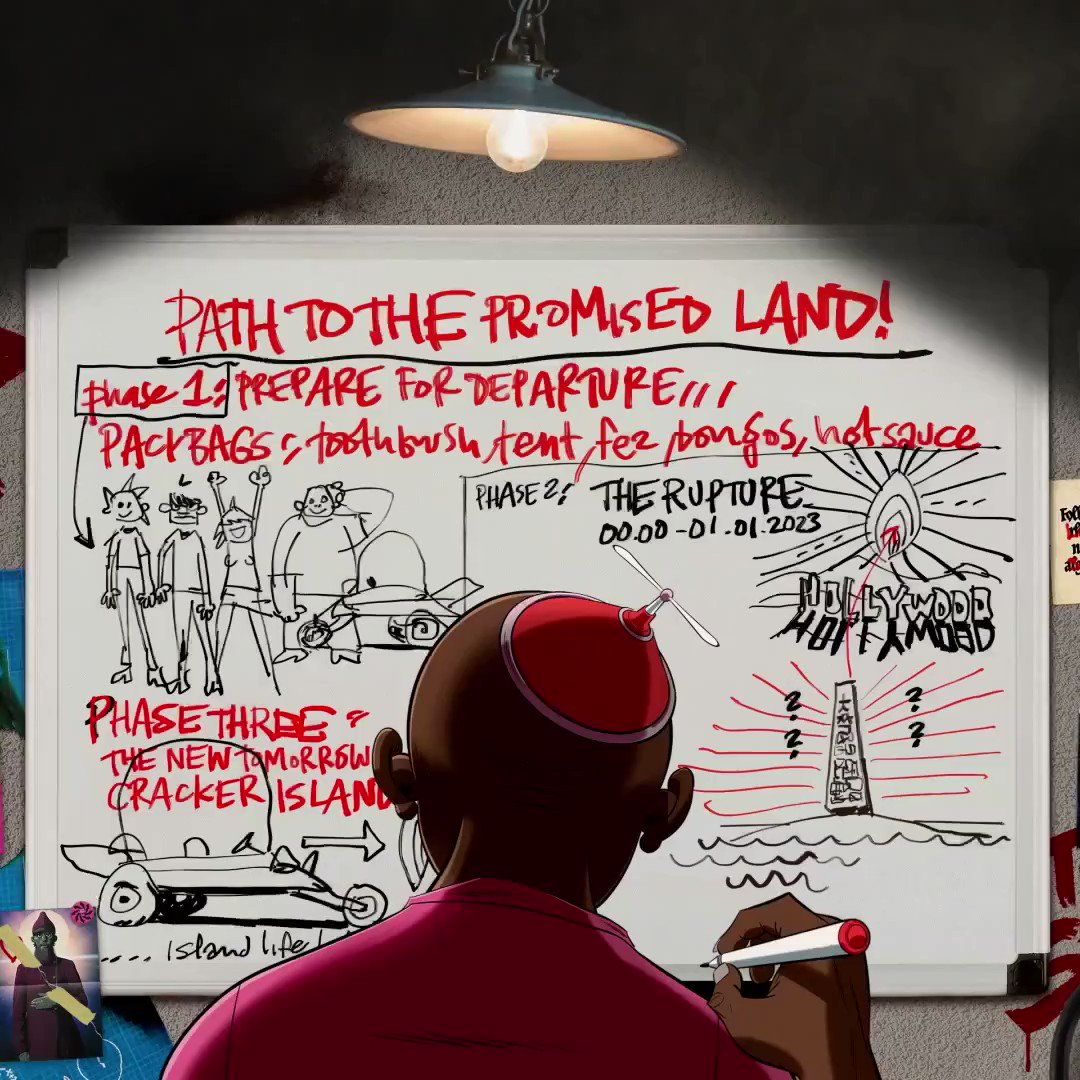 PATH TO THE PROMISED LAND!
phase 1: PREPARE FOR DEPARTURE,,,
PACK BAGS: toothbrush, tent, fez, bongos, hot sauce
PHASE 2: THE RUPTURE
00.00 - 01.01.2023
HOLLYWOOD
? ?
? ?
PHASE THREE:
THE NEW TOMORROW
CRACKER ISLAND
.... island life!